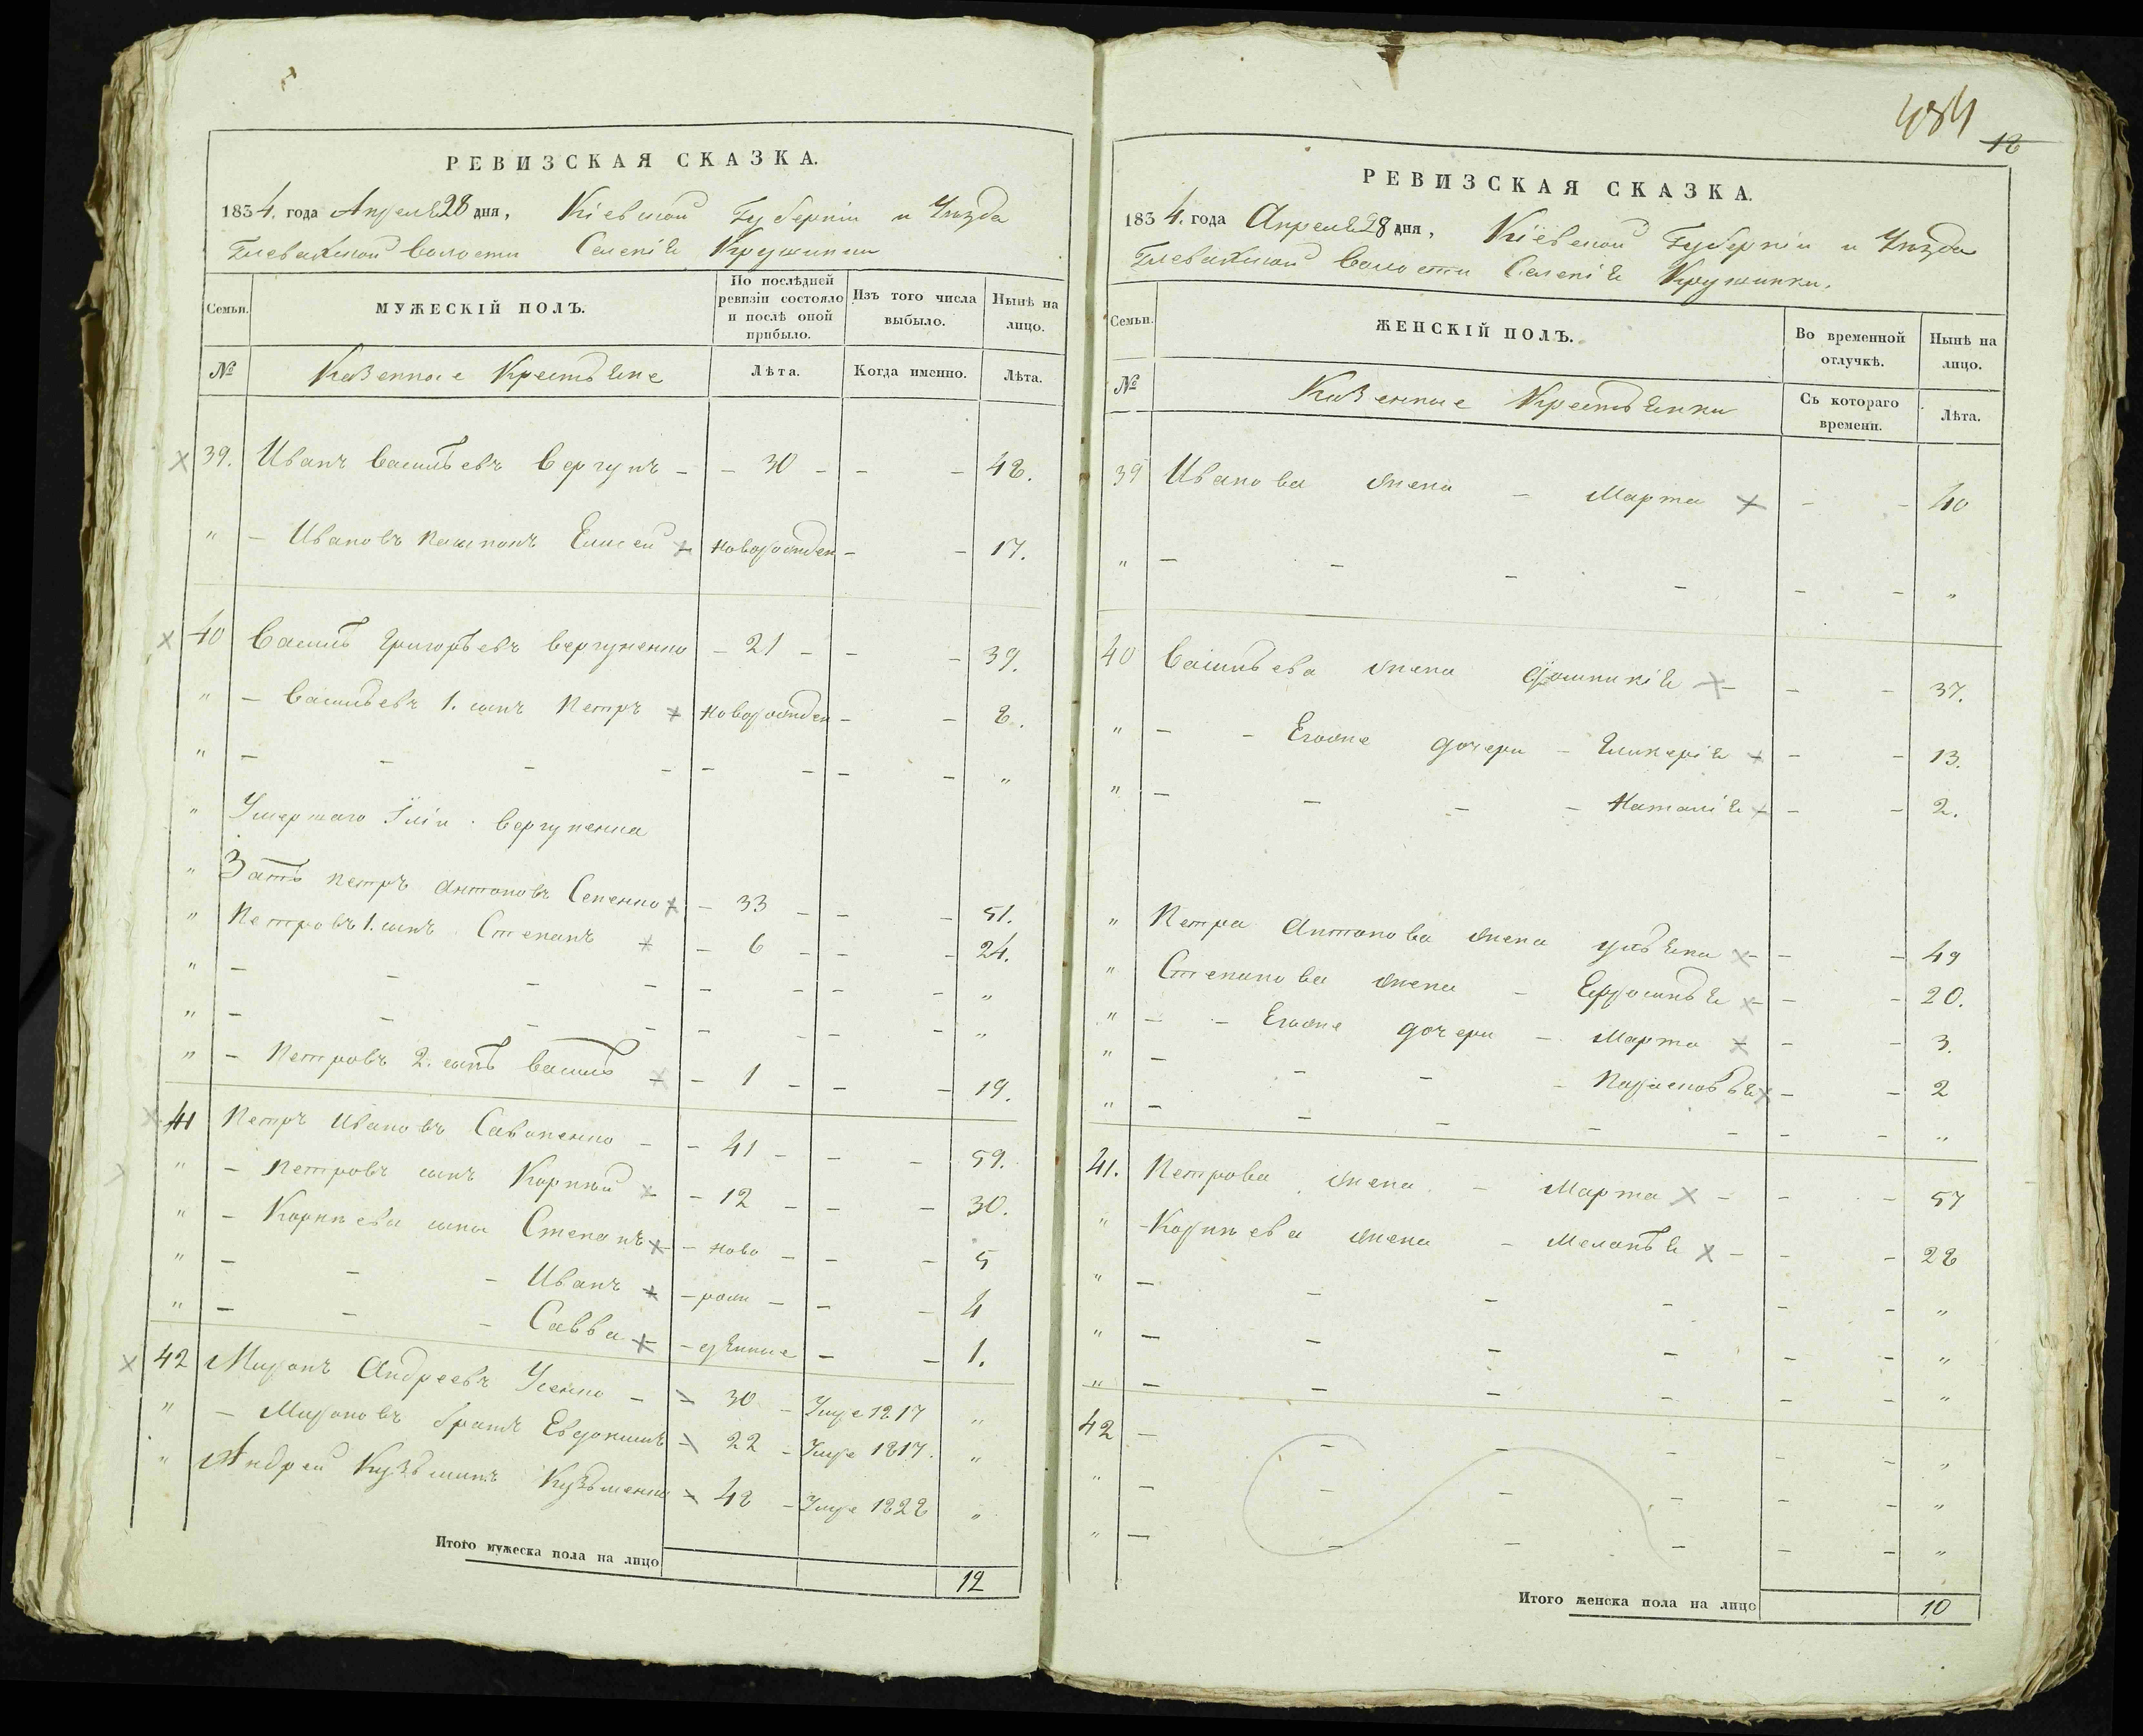 РЕВИЗСКАЯ СКАЗКА.
1834. года Апреля 28 дня, Кіевской Губерніи и Уѣзда
Глевахской Волости Селенія Кружинки
Семьи.
МУЖЕСКІЙ ПОЛЪ.
По послѣдней ревизіи состояло и послѣ оной прибыло.
Изъ того числа выбыло.
Нынѣ на лицо.
№ Казенные Крестьяне Лѣта. Когда именно. Лѣта.
39. Иванъ Васильевъ Вергунъ - - 30 - - - 48.
" - Ивановъ Елисей новорожден - - 17.
40 Василь Григорьевъ Вергуненко - 21 - - - 39.
" - Васильевъ 1. сынъ Петръ новорожден - - 8.
" - - - - - - - - "
" Умершаго Іліи Вергуненка
" Зять Петръ Антоновъ Сененко - 33 - - - 51.
" Петровъ 1. сынъ Степанъ - 6 - - - 24.
" - - - - - - - - "
" - - - - - - - - "
" - Петровъ 2. сынъ Василь - - 1 - - - 19.
41 Петръ Ивановъ Савопенко - - 41 - - - 59.
" - Петровъ сынъ Корнѣй - - 12 - - - 30.
" - Корнѣева сыны Степанъ - ново - - - 5
" - - - Иванъ - рож - - - 4
" - - - Савва - дѣнные - - 1.
42 Миронъ Андреевъ Усенко - - 30 - Умре 1817 "
" - Мироновъ братъ Евдокимъ - 22 - Умре 1817. "
" Андрей Кузьминъ Кузьменко - 48 - Умре 1828 "
Итого мужеска пола на лицо 12
484
18
РЕВИЗСКАЯ СКАЗКА.
1834. года Апреля 28 дня, Кіевской Губерніи и Уѣзда
Глевахской Волости Селенія Кружинки.
Семьи.
ЖЕНСКІЙ ПОЛЪ.
Во временной отлучкѣ.
Нынѣ на лицо.
№ Казенные Крестьянки Съ котораго времени. Лѣта.
39 Иванова жена - Марта - - 40
" - - - - - - "
40 Васильева жена Домникія - - - 37.
" - - Егоже дочери - Гликерія - - 13.
" - - - - Наталія - - 2.
" Петра Антонова жена Ульяна - - - 49
" Степанова жена - Ефросинья - - - 20.
" - - Егоже дочери - Марта - - 3.
" - - - - Парасковья - - 2
" - - - - - - - "
41. Петрова жена - Марта - - - 57
" - Корнѣева жена - Меланья - - - 28
" - - - - - - "
" - - - - - - "
" - - - - - - "
42 - - - - - - "
" - - - - - - "
" - - - - - - "
Итого женска пола на лице 10